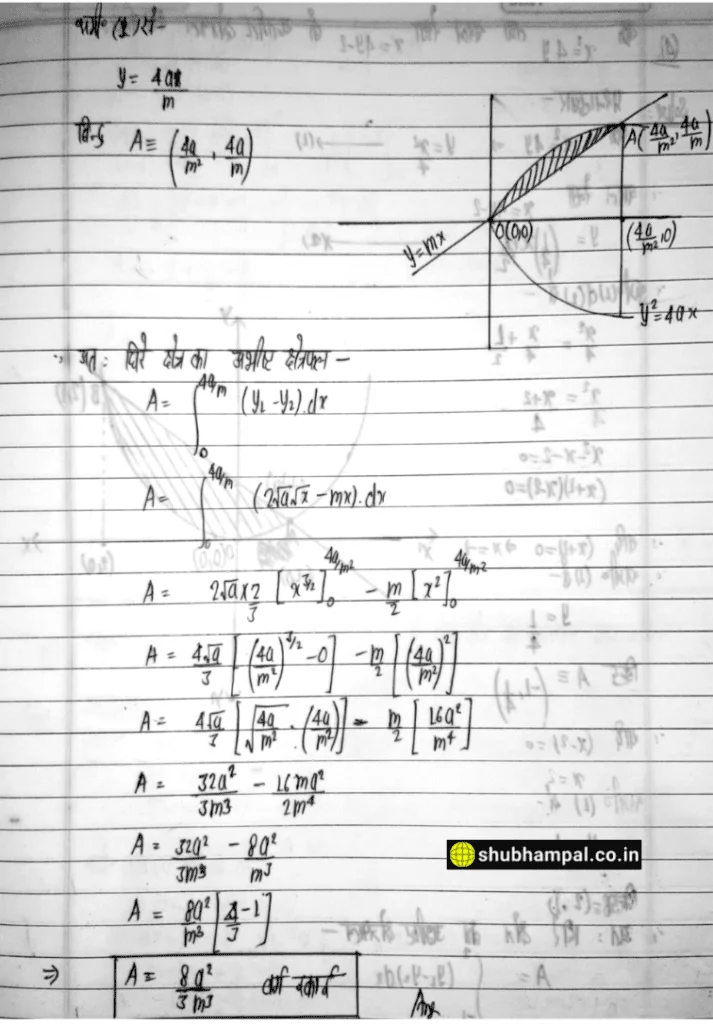 समी० (2) से-
y = 4a/m
बिन्दु A ≡ (4a/m², 4a/m)
A(4a/m², 4a/m)
O(0,0)
(4a/m², 0)
y=mx
y²=4ax
∵ अतः घिरे क्षेत्र का अभीष्ट क्षेत्रफल –
A = ∫₀^(4a/m) (y₁ - y₂).dx
A = ∫₀^(4a/m) (2√a√x - mx).dx
A = 2√a × 2/3 [x^(3/2)]₀^(4a/m²) - m/2 [x²]₀^(4a/m²)
A = 4√a/3 [(4a/m²)^(3/2) - 0] - m/2 [(4a/m²)²]
A = 4√a/3 [√(4a/m²) . (4a/m²)] - m/2 [16a²/m⁴]
A = 32a²/3m3 - 16ma²/2m⁴
A = 32a²/3m³ - 8a²/m³
shubhampal.co.in
A = 8a²/m3 [4-1/3]
⇒ A = 8a²/3m³ वर्ग इकाई
Ans